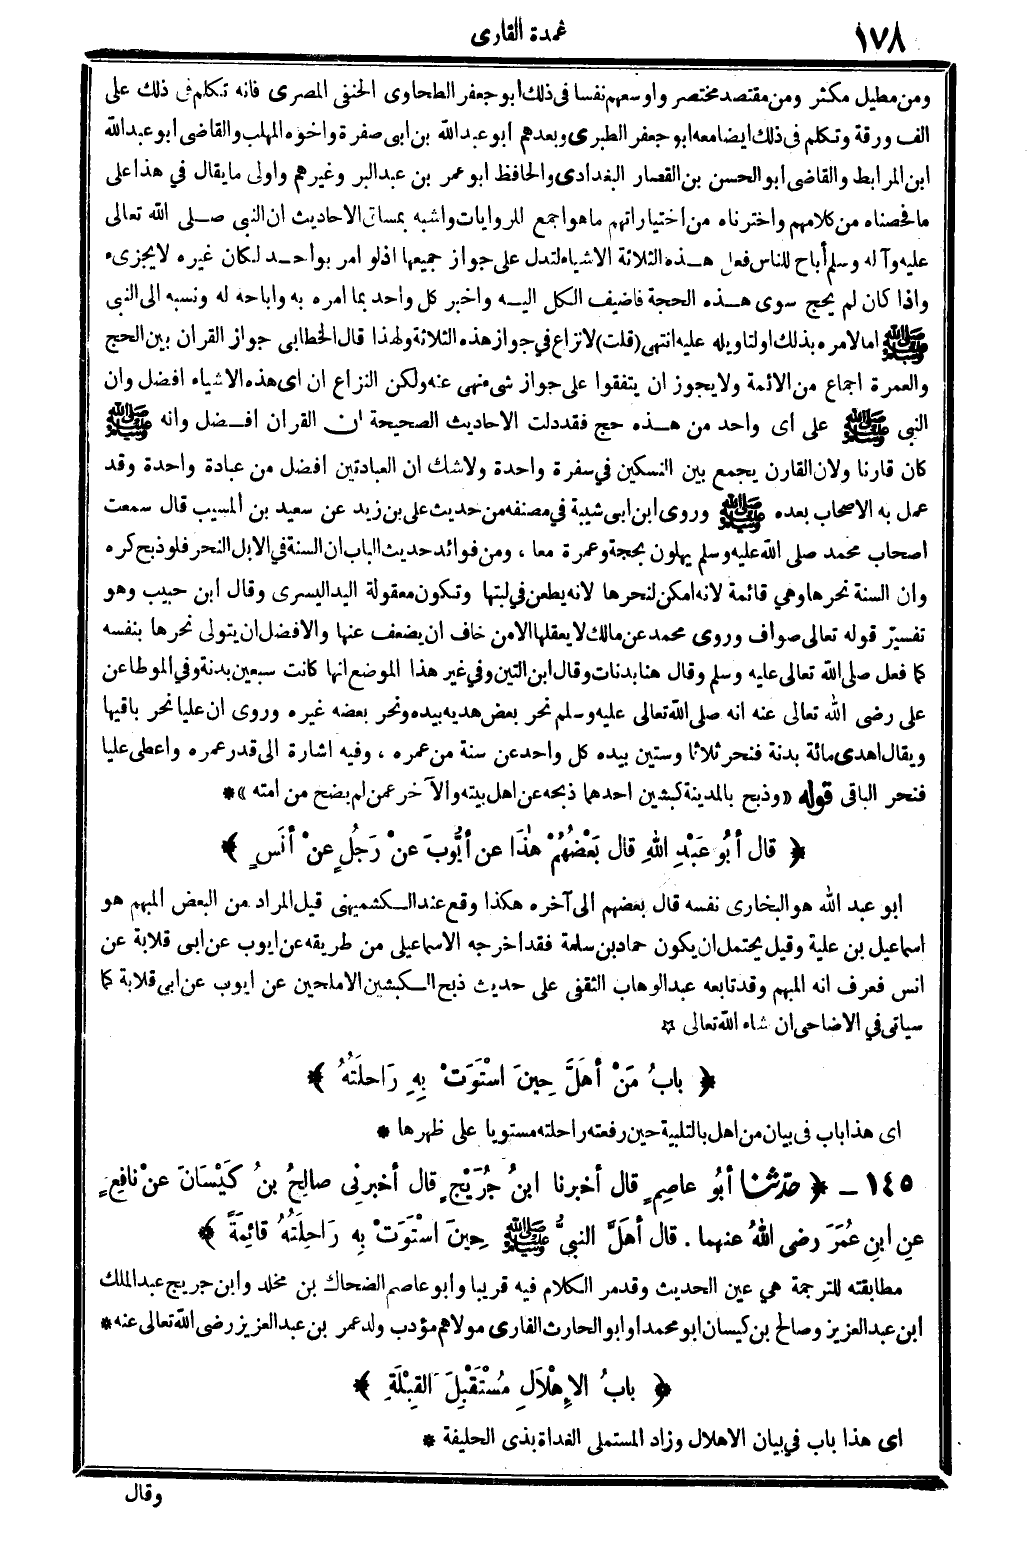 ١٧٨
عمدة القارى
ومن مطيل مكثر ومن مقتصد مختصر واوسعهم نفسا فى ذلك ابو جعفر الطحاوى الحنفى المصرى فانه تكلم فى ذلك على
الف ورقة وتكلم فى ذلك ايضا معه ابو جعفر الطبرى وبعدهم ابو عبدالله بن ابى صفرة واخوه المهلب والقاضى ابو عبدالله
ابن المرابط والقاضى ابو الحسن بن القصار البغدادى والحافظ ابو عمر بن عبدالبر وغيرهم واولى ما يقال في هذا على
ما فحصناه من كلامهم واخترناه من اختياراتهم ما هو اجمع للروايات واشبه بمساق الاحاديث ان النبى صلى الله تعالى
عليه وآله وسلم أباح للناس فعل هذه الثلاثة الاشياء لتدل على جواز جميعها اذ لو امر بواحد لكان غيره لا يجزىء
واذا كان لم يحج سوى هذه الحجة فاضيف الكل اليه واخبر كل واحد بما امره به واباحه له ونسبه الى النبى
ﷺ اما لامره بذلك او لتاويله عليه انتهى (قلت) لا نزاع في جواز هذه الثلاثة ولهذا قال الخطابى جواز القران بين الحج
والعمرة اجماع من الائمة ولا يجوز ان يتفقوا على جواز شى منهى عنه ولكن النزاع ان اى هذه الاشياء افضل وان
النبى ﷺ على اى واحد من هذه حج فقد دلت الاحاديث الصحيحة ان القران افضل وانه ﷺ
كان قارنا ولان القارن يجمع بين النسكين في سفرة واحدة ولا شك ان العبادتين افضل من عبادة واحدة وقد
عمل به الاصحاب بعده ﷺ وروى ابن ابى شيبة في مصنفه من حديث على بن زيد عن سعيد بن المسيب قال سمعت
اصحاب محمد صلى الله عليه وسلم يهلون بحجة وعمرة معا ، ومن فوائد حديث الباب ان السنة في الابل النحر فلو ذبح كره
وان السنة نحرها وهي قائمة لانه امكن لنحرها لانه يطعن في لبتها وتكون معقولة اليد اليسرى وقال ابن حبيب وهو
تفسير قوله تعالى صواف وروى محمد عن مالك لا يعقلها الا من خاف ان يضعف عنها والافضل ان يتولى نحرها بنفسه
كما فعل صلى الله تعالى عليه وسلم وقال هنا بدنات وقال ابن التين وفي غير هذا الموضع انها كانت سبعين بدنة وفي الموطا عن
على رضى الله تعالى عنه انه صلى الله تعالى عليه وسلم نحر بعض هديه بيده ونحر بعضه غيره وروى ان عليا نحر باقيها
ويقال اهدى مائة بدنة فنحر ثلاثا وستين بيده كل واحد عن سنة من عمره ، وفيه اشارة الى قدر عمره واعطى عليا
فنحر الباقى قوله «وذبح بالمدينة كبشين احدهما ذبحه عن اهل بيته والآخر عمن لم يضح من امته» *
﴿ قال أبُو عَبْدِ اللهِ قال بَعْضُهُمْ هٰذَا عن أيُّوبَ عنْ رَجُلٍ عنْ أنَسٍ ﴾
ابو عبد الله هو البخارى نفسه قال بعضهم الى آخره هكذا وقع عند الكشميهنى قيل المراد من البعض المبهم هو
اسماعيل بن علية وقيل يحتمل ان يكون حماد بن سلمة فقد اخرجه الاسماعيلى من طريقه عن ايوب عن ابى قلابة عن
انس فعرف انه المبهم وقد تابعه عبد الوهاب الثقفى على حديث ذبح الكبشين الاملحين عن ايوب عن ابى قلابة كما
سياتى في الاضاحى ان شاء الله تعالى ☆
﴿ بابُ مَنْ أهَلَّ حِينَ اسْتَوَتْ بِهِ رَاحِلَتُهُ ﴾
اى هذا باب فى بيان من اهل بالتلبية حين رفعته راحلته مستويا على ظهرها *
١٤٥ ـ ﴿ حدّثنا أبُو عاصِمٍ قال أخبرنا ابنُ جُرَيْجٍ قال أخبرنِى صالِحُ بنُ كَيْسَانَ عنْ نافِعٍ
عنِ ابنِ عُمَرَ رضى اللهُ عنهما . قال أهَلَّ النبىُّ ﷺ حِينَ اسْتَوَتْ بِهِ رَاحِلَتُهُ قائِمَةً ﴾
مطابقته للترجمة هي عين الحديث وقد مر الكلام فيه قريبا وابو عاصم الضحاك بن مخلد وابن جريج عبد الملك
ابن عبد العزيز وصالح بن كيسان ابو محمد او ابو الحارث الغفارى مولاهم مؤدب ولد عمر بن عبد العزيز رضى الله تعالى عنه *
﴿ بابُ الإهْلَالِ مُسْتَقْبِلَ القِبْلَةِ ﴾
اى هذا باب في بيان الاهلال وزاد المستملى الغداة بذى الحليفة *
وقال